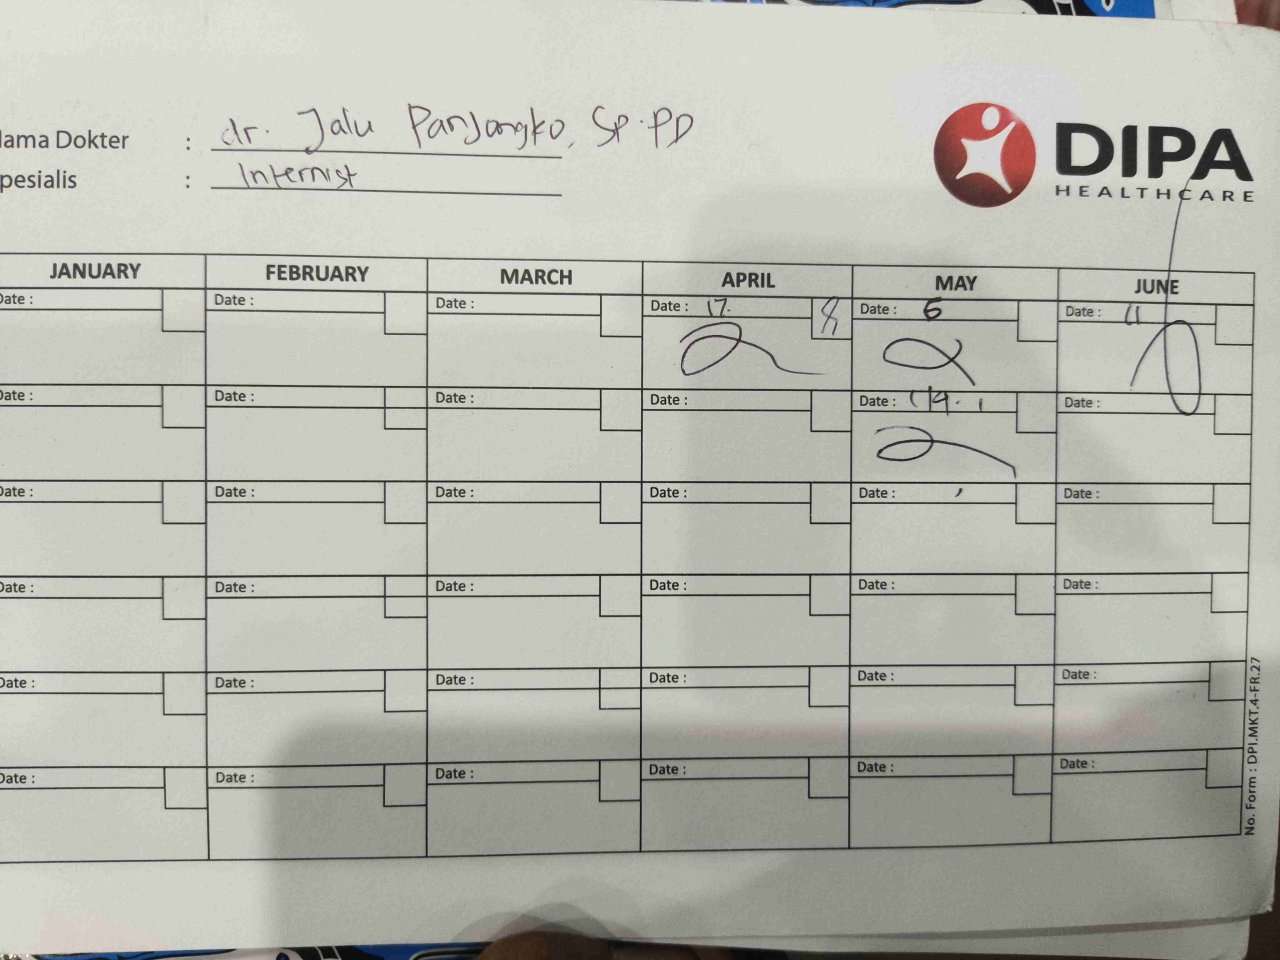 dr. Jalu Panjangko, Sp.PD
lama Dokter :
Internist
pesialis :
DIPA
HEALTHCARE
JANUARY FEBRUARY MARCH APRIL MAY JUNE
Date : Date : Date : Date : 17. Date : 6 Date : 11
Date : Date : Date : Date : Date : Date :
Date : Date : Date : Date : Date : Date :
Date : Date : Date : Date : Date : Date :
Date : Date : Date : Date : Date : Date :
Date : Date : Date : Date : Date : Date :
No. Form : DPI.MKT.4-FR.27